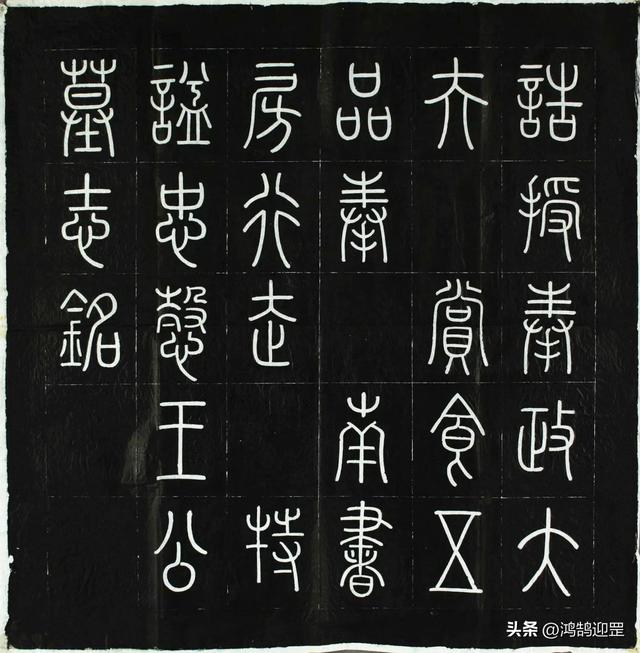 誥授奉政大
夫 賞食五
品奉 南書
房行走 特
諡忠愨王公
墓志銘
头条 @鸿鹄迎罡